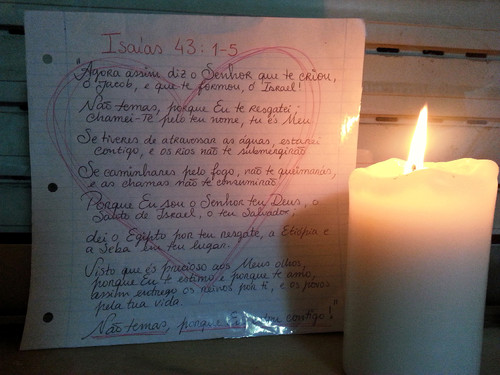 Isaías 43: 1-5
"Agora assim diz o Senhor que te criou,
ó Jacob, e que te formou, ó Israel!
Não temas, porque Eu te resgatei;
chamei-Te pelo teu nome, tu és Meu
Se tiveres de atravessar as águas, estarei
contigo, e os rios não te submergirão
Se caminhares pelo fogo, não te queimarás,
e as chamas não te consumirão
Porque Eu sou o Senhor teu Deus, o
Santo de Israel, o teu Salvador;
dei o Egipto por teu resgate, a Etiópia e
a Seba em teu lugar.
Visto que és precioso aos Meus olhos,
porque Eu te estimo e porque te amo,
assim entrego os reinos por ti, e os povos
pela tua vida.
Não temas, porque Eu estou contigo!"